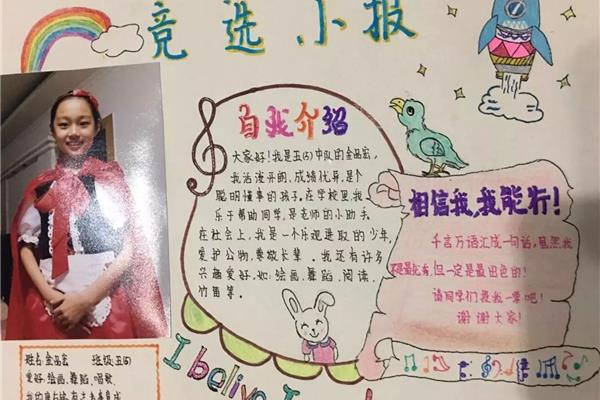 竞选小报
自我介绍
大家好！我是五(5)中队的金品宏，
我活泼开朗，成绩优异，是个
聪明懂事的孩子。在学校里我
乐于帮助同学，是老师的小助手
在社会上，我是一个乐观进取的少年，
爱护公物，尊敬长辈。我还有许多
兴趣爱好，如：绘画、舞蹈、阅读、
竹笛等。
相信我，我能行！
千言万语汇成一句话，虽然我
不是最优秀，但一定是最出色的！
请同学们投我一票吧！
谢谢大家！
姓名：金品宏 班级：五(5)
爱好：绘画、舞蹈、唱歌
I belive I